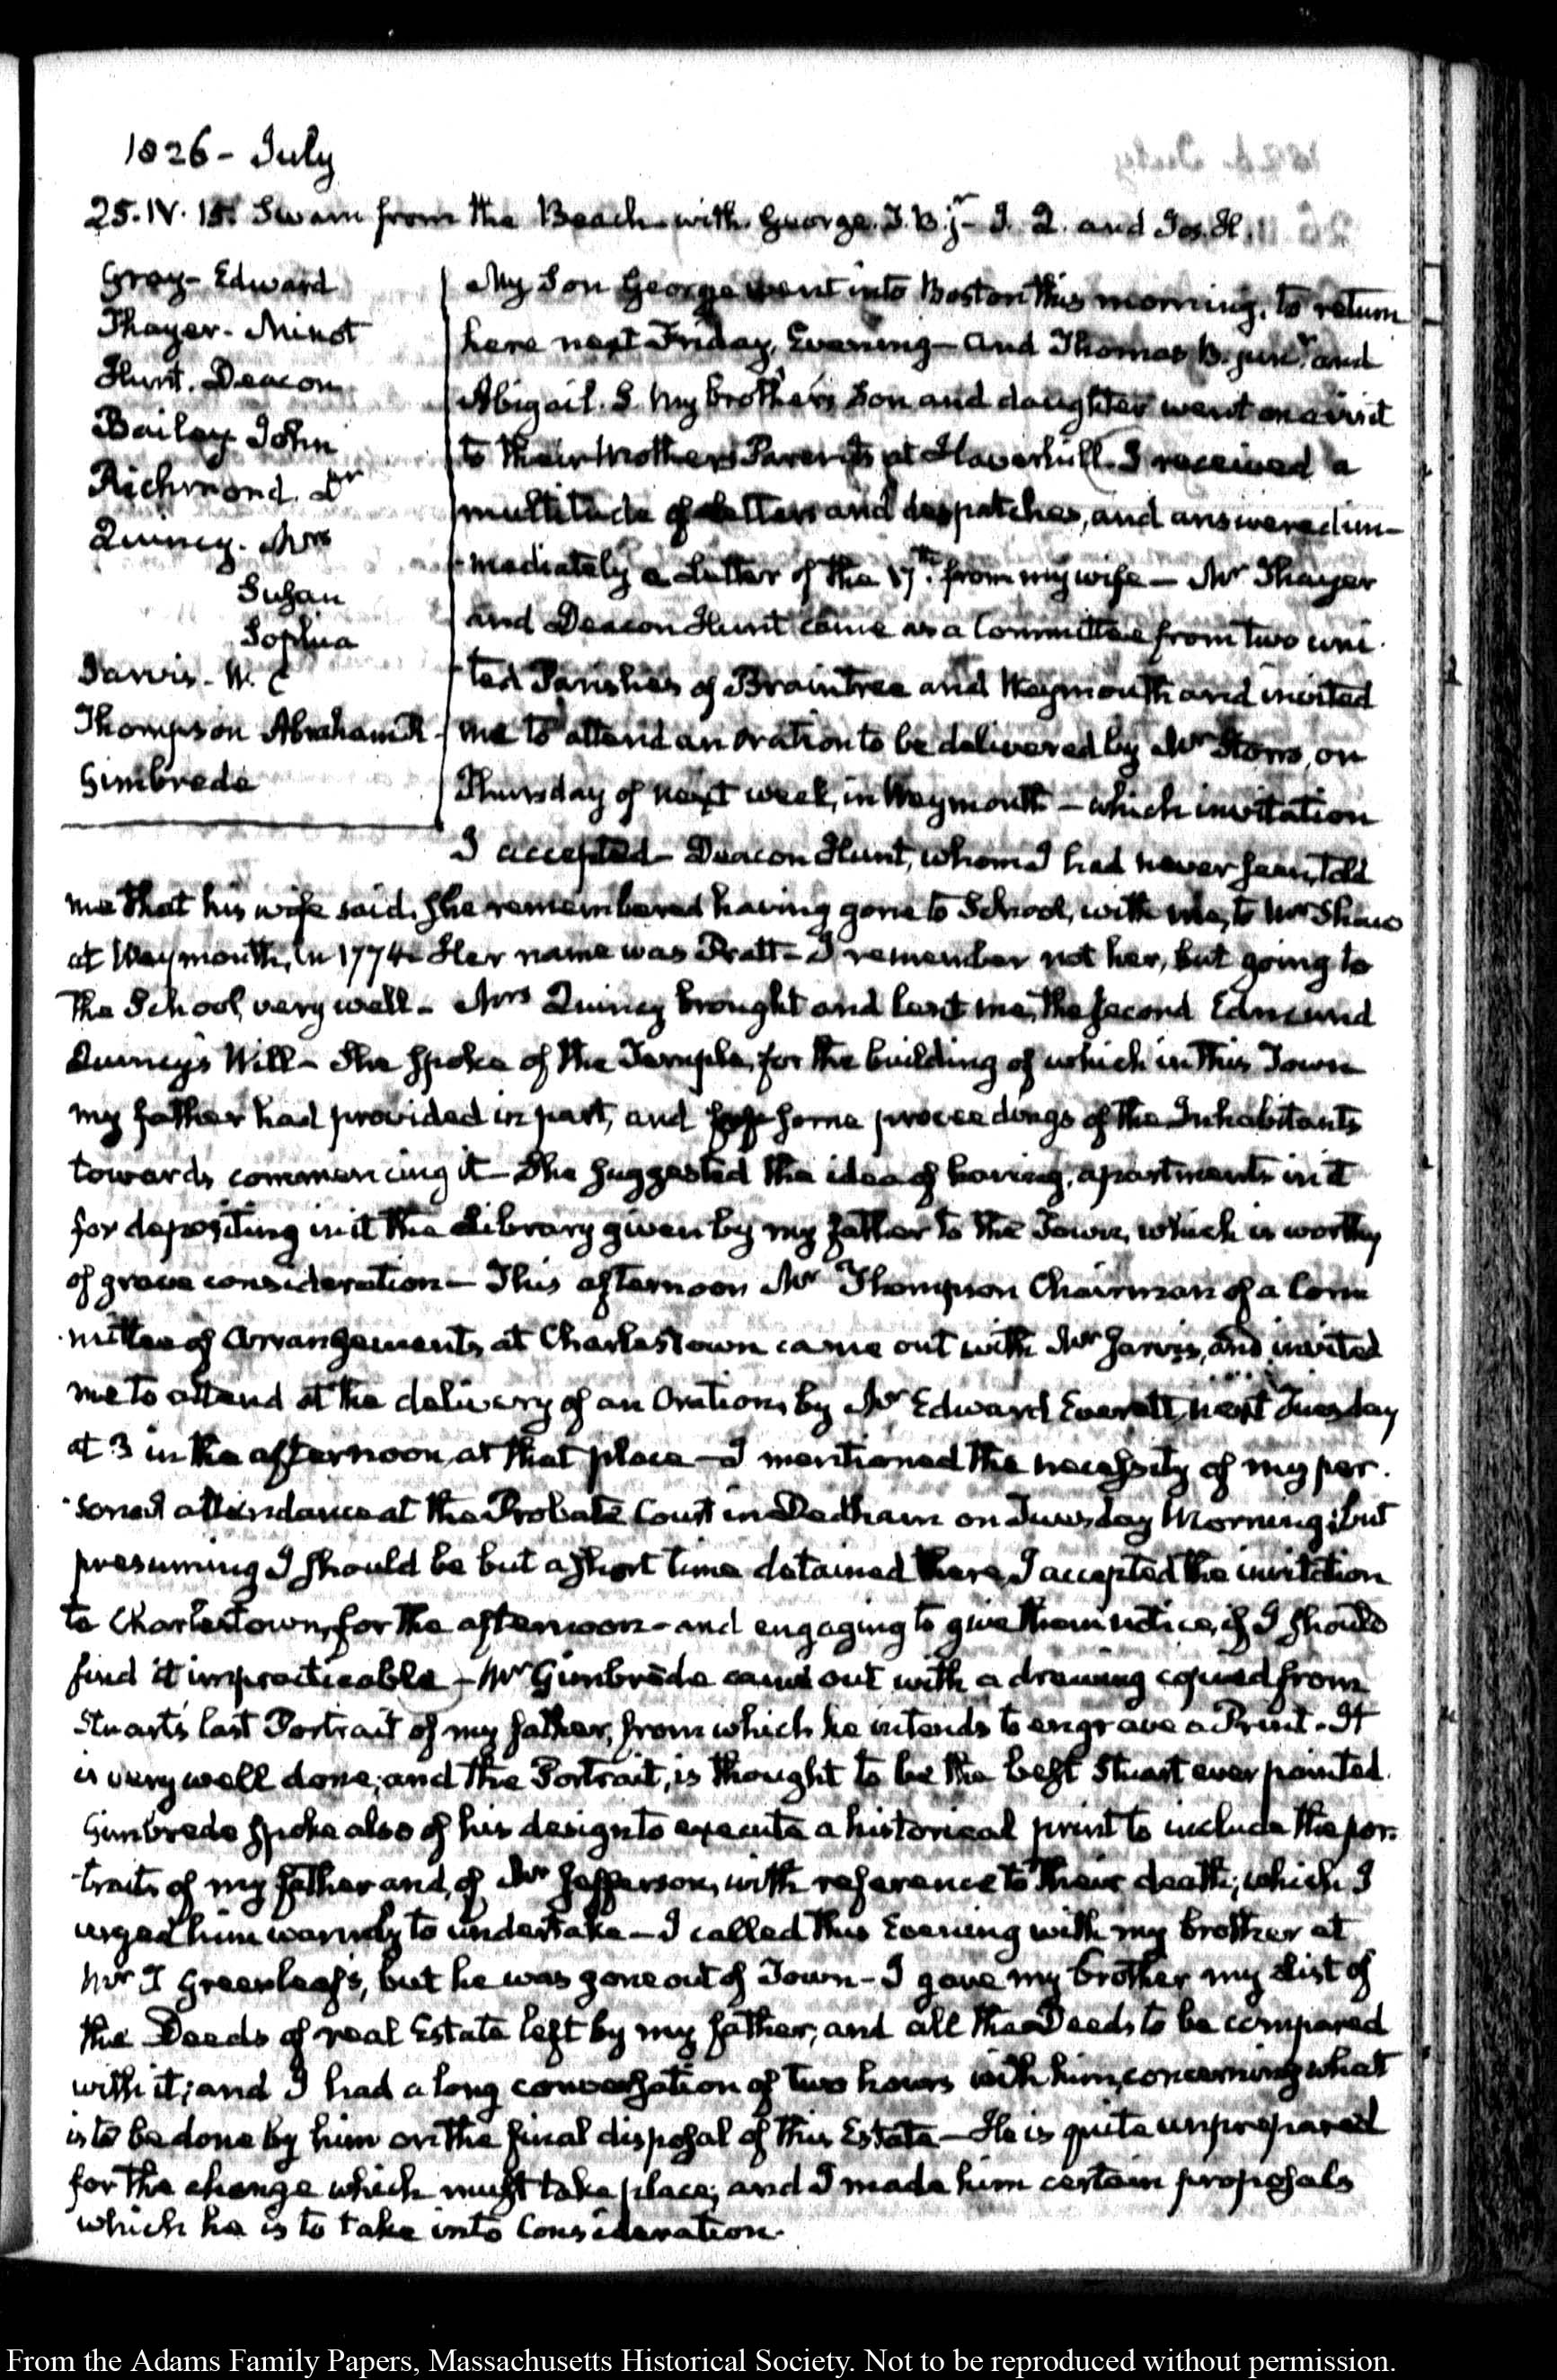 1826 - July
25. IV. 15. Swam from the Beach with George. T. B. jr - J. Q. and Jos. H.
Gray - Edward
Thayer - Minot
Hunt. Deacon
Bailey John
Richmond. Dr
Quincy. Mrs
Susan
Sophia
Jarvis - W. C
Thompson Abraham R.
Gimbrede
My Son George went into Boston this morning, to return
here next Friday, Evening - and Thomas B. junr. and
Abigail. S. my brother's Son and daughter went on a visit
to their Mothers Parents at Haverhill. I received a
multitude of letters and despatches, and answered im-
-mediately a Letter of the 17th. from my wife - Mr Thayer
and Deacon Hunt came as a Committee from two uni-
-ted Parishes of Braintree and Weymouth and invited
me to attend an oration to be delivered by Mr Storrs, on
Thursday of next week, in Weymouth - which invitation
I accepted - Deacon Hunt, whom I had never seen, told
me that his wife said, she remembered having gone to School, with me, to Mr Shaw
at Weymouth, in 1774. Her name was Pratt - I remember not her, but going to
the School very well - Mrs Quincy brought and lent me, the second Edmund
Quincy's Will - She spoke of the Temple, for the building of which in this Town
my father had provided in part, and some proceedings of the Inhabitants
towards commencing it - She suggested the idea of having, apartments in it
for depositing in it the Library given by my father to the Town, which is worthy
of grave consideration - This afternoon Mr Thompson Chairman of a Com
-mittee of Arrangements, at Charlestown came out with Mr Jarvis, and invited
me to attend at the delivery of an Oration, by Mr Edward Everett, next Tuesday
at 3 in the afternoon, at that place - I mentioned the necessity of my per-
-sonal attendance at the Probate Court in Dedham on Tuesday Morning; but
presuming I should be but a short time detained there, I accepted the invitation
to Charlestown, for the afternoon - and engaging to give them notice, if I should
find it impracticable - Mr Gimbrede came out with a drawing copied from
Stuart's last Portrait of my father, from which he intends to engrave a Print. It
is very well done; and the Portrait, is thought to be the best Stuart ever painted.
Gimbrede spoke also of his design to execute a historical print to include the por-
-traits of my father and of Mr Jefferson, with reference to their death; which I
urged him warmly to undertake - I called this Evening with my brother at
Mr T Greenleaf's, but he was gone out of Town - I gave my brother my List of
the Deeds of real Estate left by my father, and all the Deeds to be compared
with it; and I had a long conversation of two hours with him, concerning what
is to be done by him on the final disposal of this Estate - He is quite unprepared
for the change which must take place; and I made him certain proposals
which he is to take into Consideration.
From the Adams Family Papers, Massachusetts Historical Society. Not to be reproduced without permission.